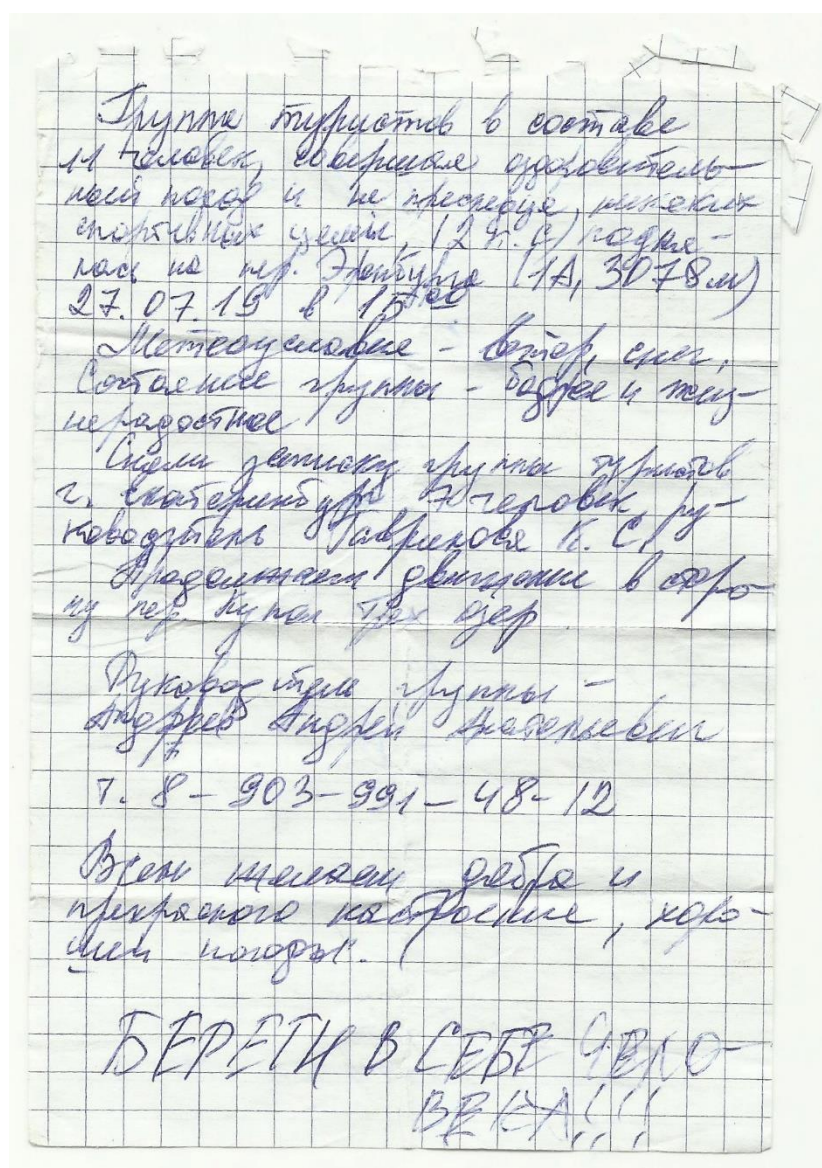 Группа туристов в составе
11 человек, совершая оздоровитель-
ный поход и не преследуя никаких
спортивных целей, (2 к.с) подня-
лась на пер. (1А, 3078 м)
27.07.19 в 15:00
Метеоусловия - ветер, снег.
Состояние группы - бодрое и жиз-
нерадостное
Сняли записку группы туристов
г. Екатеринбург 7 человек, ру-
ководитель Гаврилова К. С.
Продолжаем движение в сторо-
ну пер. Купол Трёх озер.
Руководитель группы -
Андреев Андрей Анатольевич
т. 8-903-991-48-12
Всем желаем добра и
прекрасного настроения, хоро-
шей погоды.
БЕРЕГИ В СЕБЕ ЧЕЛО-
ВЕКА!!!